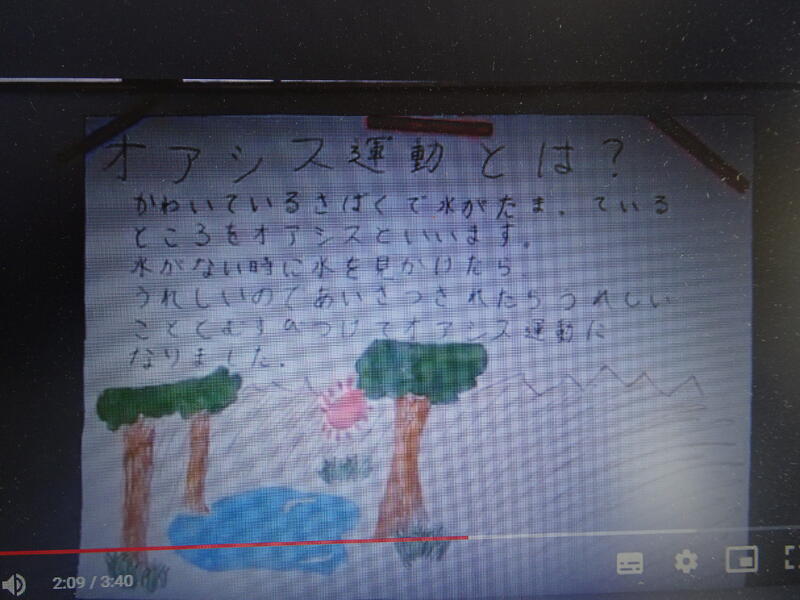 オアシス運動とは？
かわいているさばくで水がたまっている
ところをオアシスといいます。
水がない時に水を見かけたら
うれしいのであいさつされたらうれしい
こととむすびつけてオアシス運動に
なりました。
2:09 / 3:40